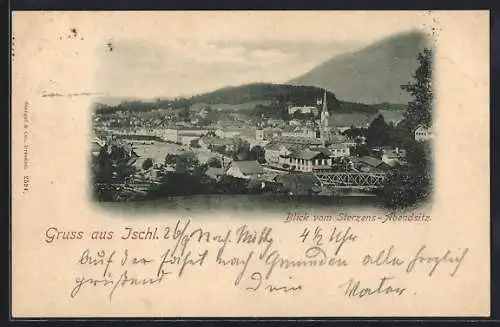 Stengel & Co., Dresden. 2524.
Blick vom Sterzens-Abendsitz.
Gruss aus Ischl. 26/9 Nach Mittg. 4 ½ Uhr
Auf der Fahrt nach Gmunden alle herzlich
grüssend dein Vater